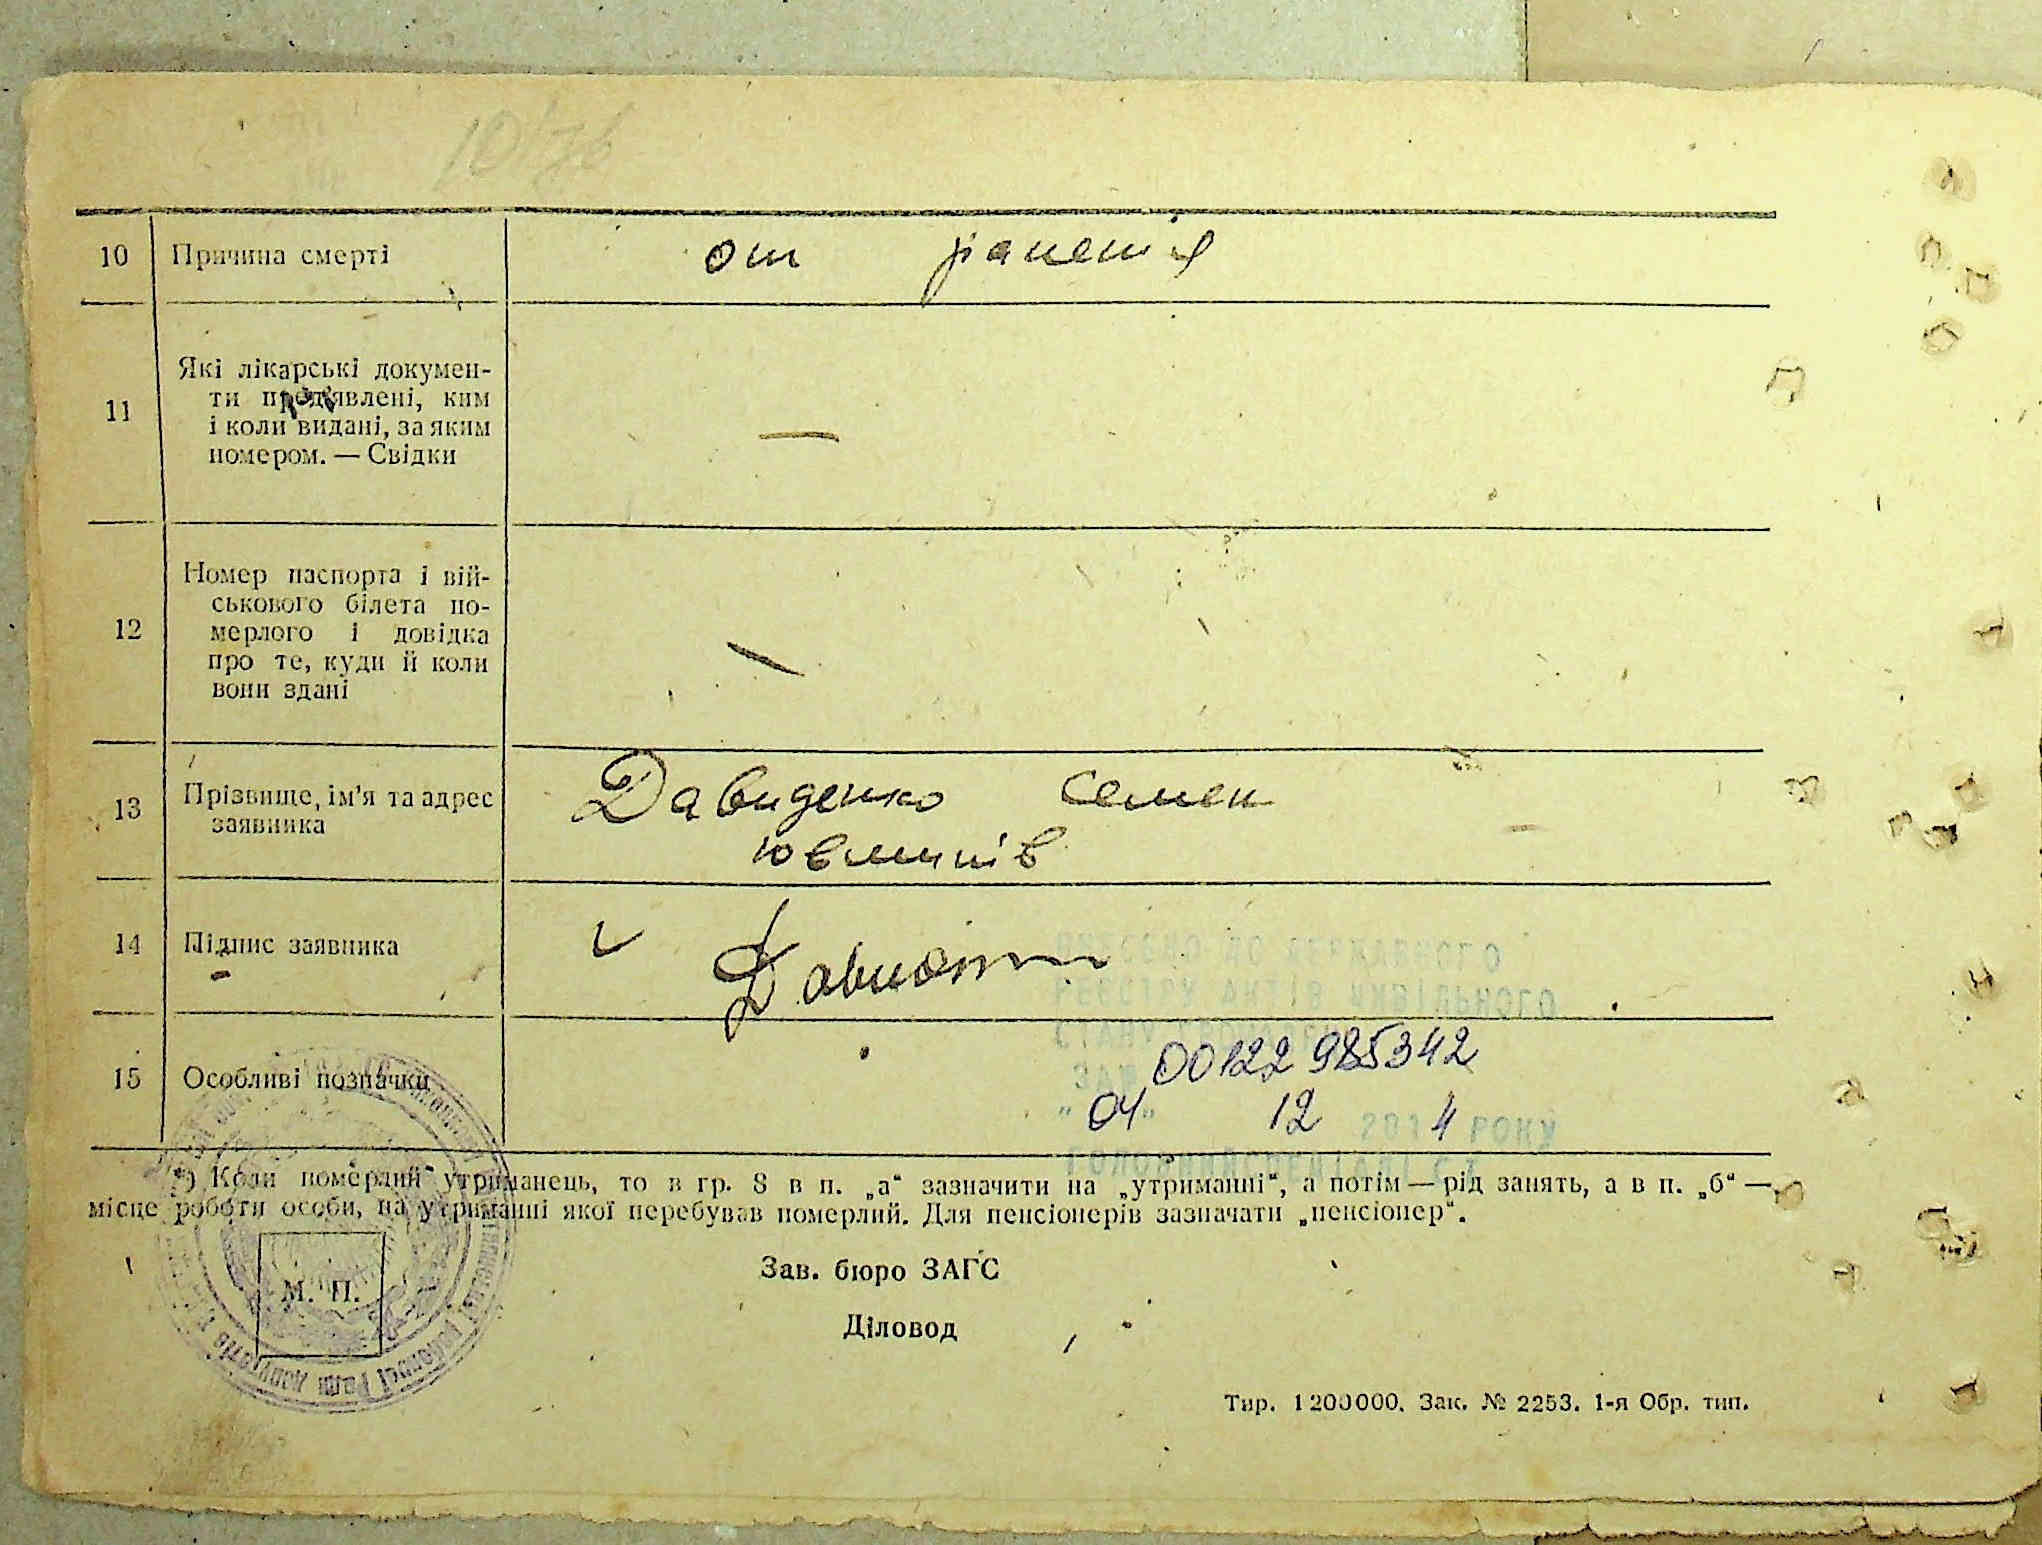 10
Причина смерті
от раненія
11
Які лікарські докумен-
ти пред'явлені, ким
і коли видані, за яким
номером. — Свідки
—
12
Номер паспорта і вій-
ськового білета по-
мерлого і довідка
про те, куди й коли
вони здані
—
13
Прізвище, ім'я та адрес
заявника
Давиденко Семен
14
Підпис заявника
ВНЕСЕНО ДО ДЕРЖАВНОГО
РЕЄСТРУ АКТІВ ЦИВІЛЬНОГО
СТАНУ
15
Особливі позначки
00122985342
"04" 12 2014 РОКУ
*) Коли померлий утриманець, то в гр. 8 в п. „а“ зазначити на „утриманні“, а потім — рід занять, а в п. „б“ —
місце роботи особи, на утриманні якої перебував померлий. Для пенсіонерів зазначати „пенсіонер“.
Зав. бюро ЗАГС
М. П.
Діловод
Тир. 1 200000. Зак. № 2253. 1-я Обр. тип.